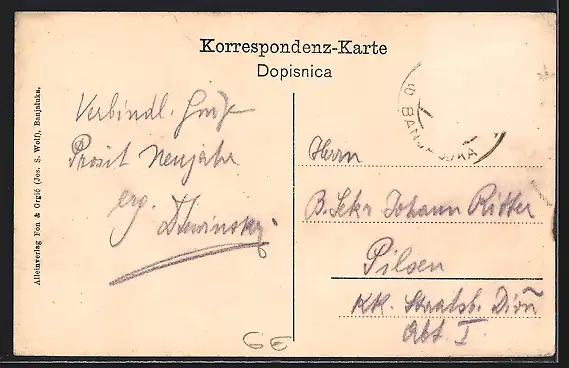 Korrespondenz-Karte
Dopisnica
Alleinverlag Fon & Grgić (Jos. S. Wolf), Banjaluka.
Verbindl.
Prosit Neujahr
erg.
BANJALUKA
Herrn
B. Sekr Johann Ritter
Pilsen
KK. Staatsb. Dion
Abt. I.
6E